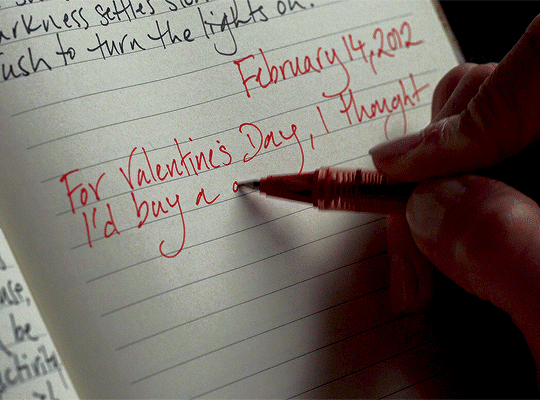 arkness settles
rush to turn the lights on.
February 14, 2012
For Valentine's Day, I thought
I'd buy a
use,
be
ctivity